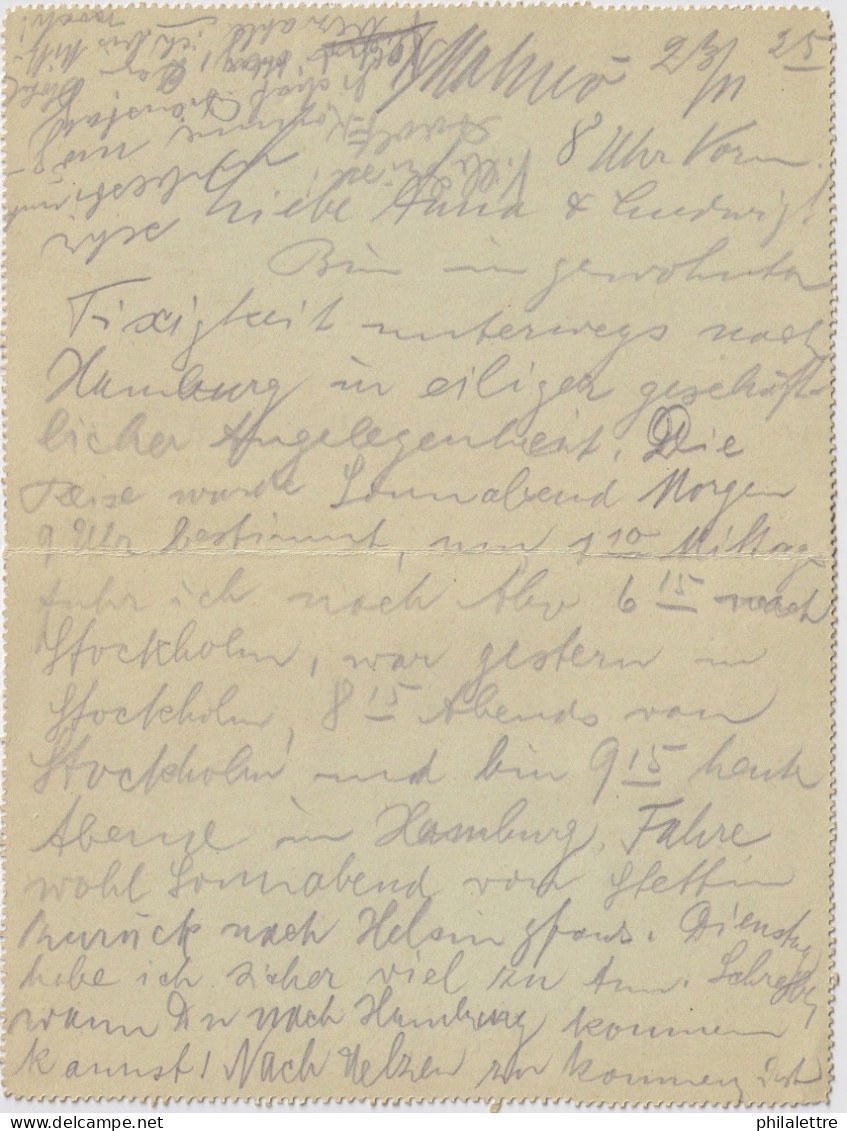 Malmö 23/11 25
8 Uhr Vorm.
Liebe Anna & Ludwig!
Bin in gewohnter
Fixigkeit unterwegs nach
Hamburg in eiliger geschäft-
licher Angelegenheit. Die
Reise wurde Sonnabend Morgen
9 Uhr bestimmt, um 1 10 Mittag
fuhr ich nach Abo 6 15 nach
Stockholm, war gestern in
Stockholm, 8 15 Abends von
Stockholm und bin 9 15 heute
Abend in Hamburg. Fahre
wohl Sonnabend von Stettin
zurück nach Helsingfors. Dienstag
habe ich sicher viel zu tun. Schreibe,
wann Du nach Hamburg kommen
kannst! Nach Uelzen zu kommen,
sehr unbestimmt
philalettre.com